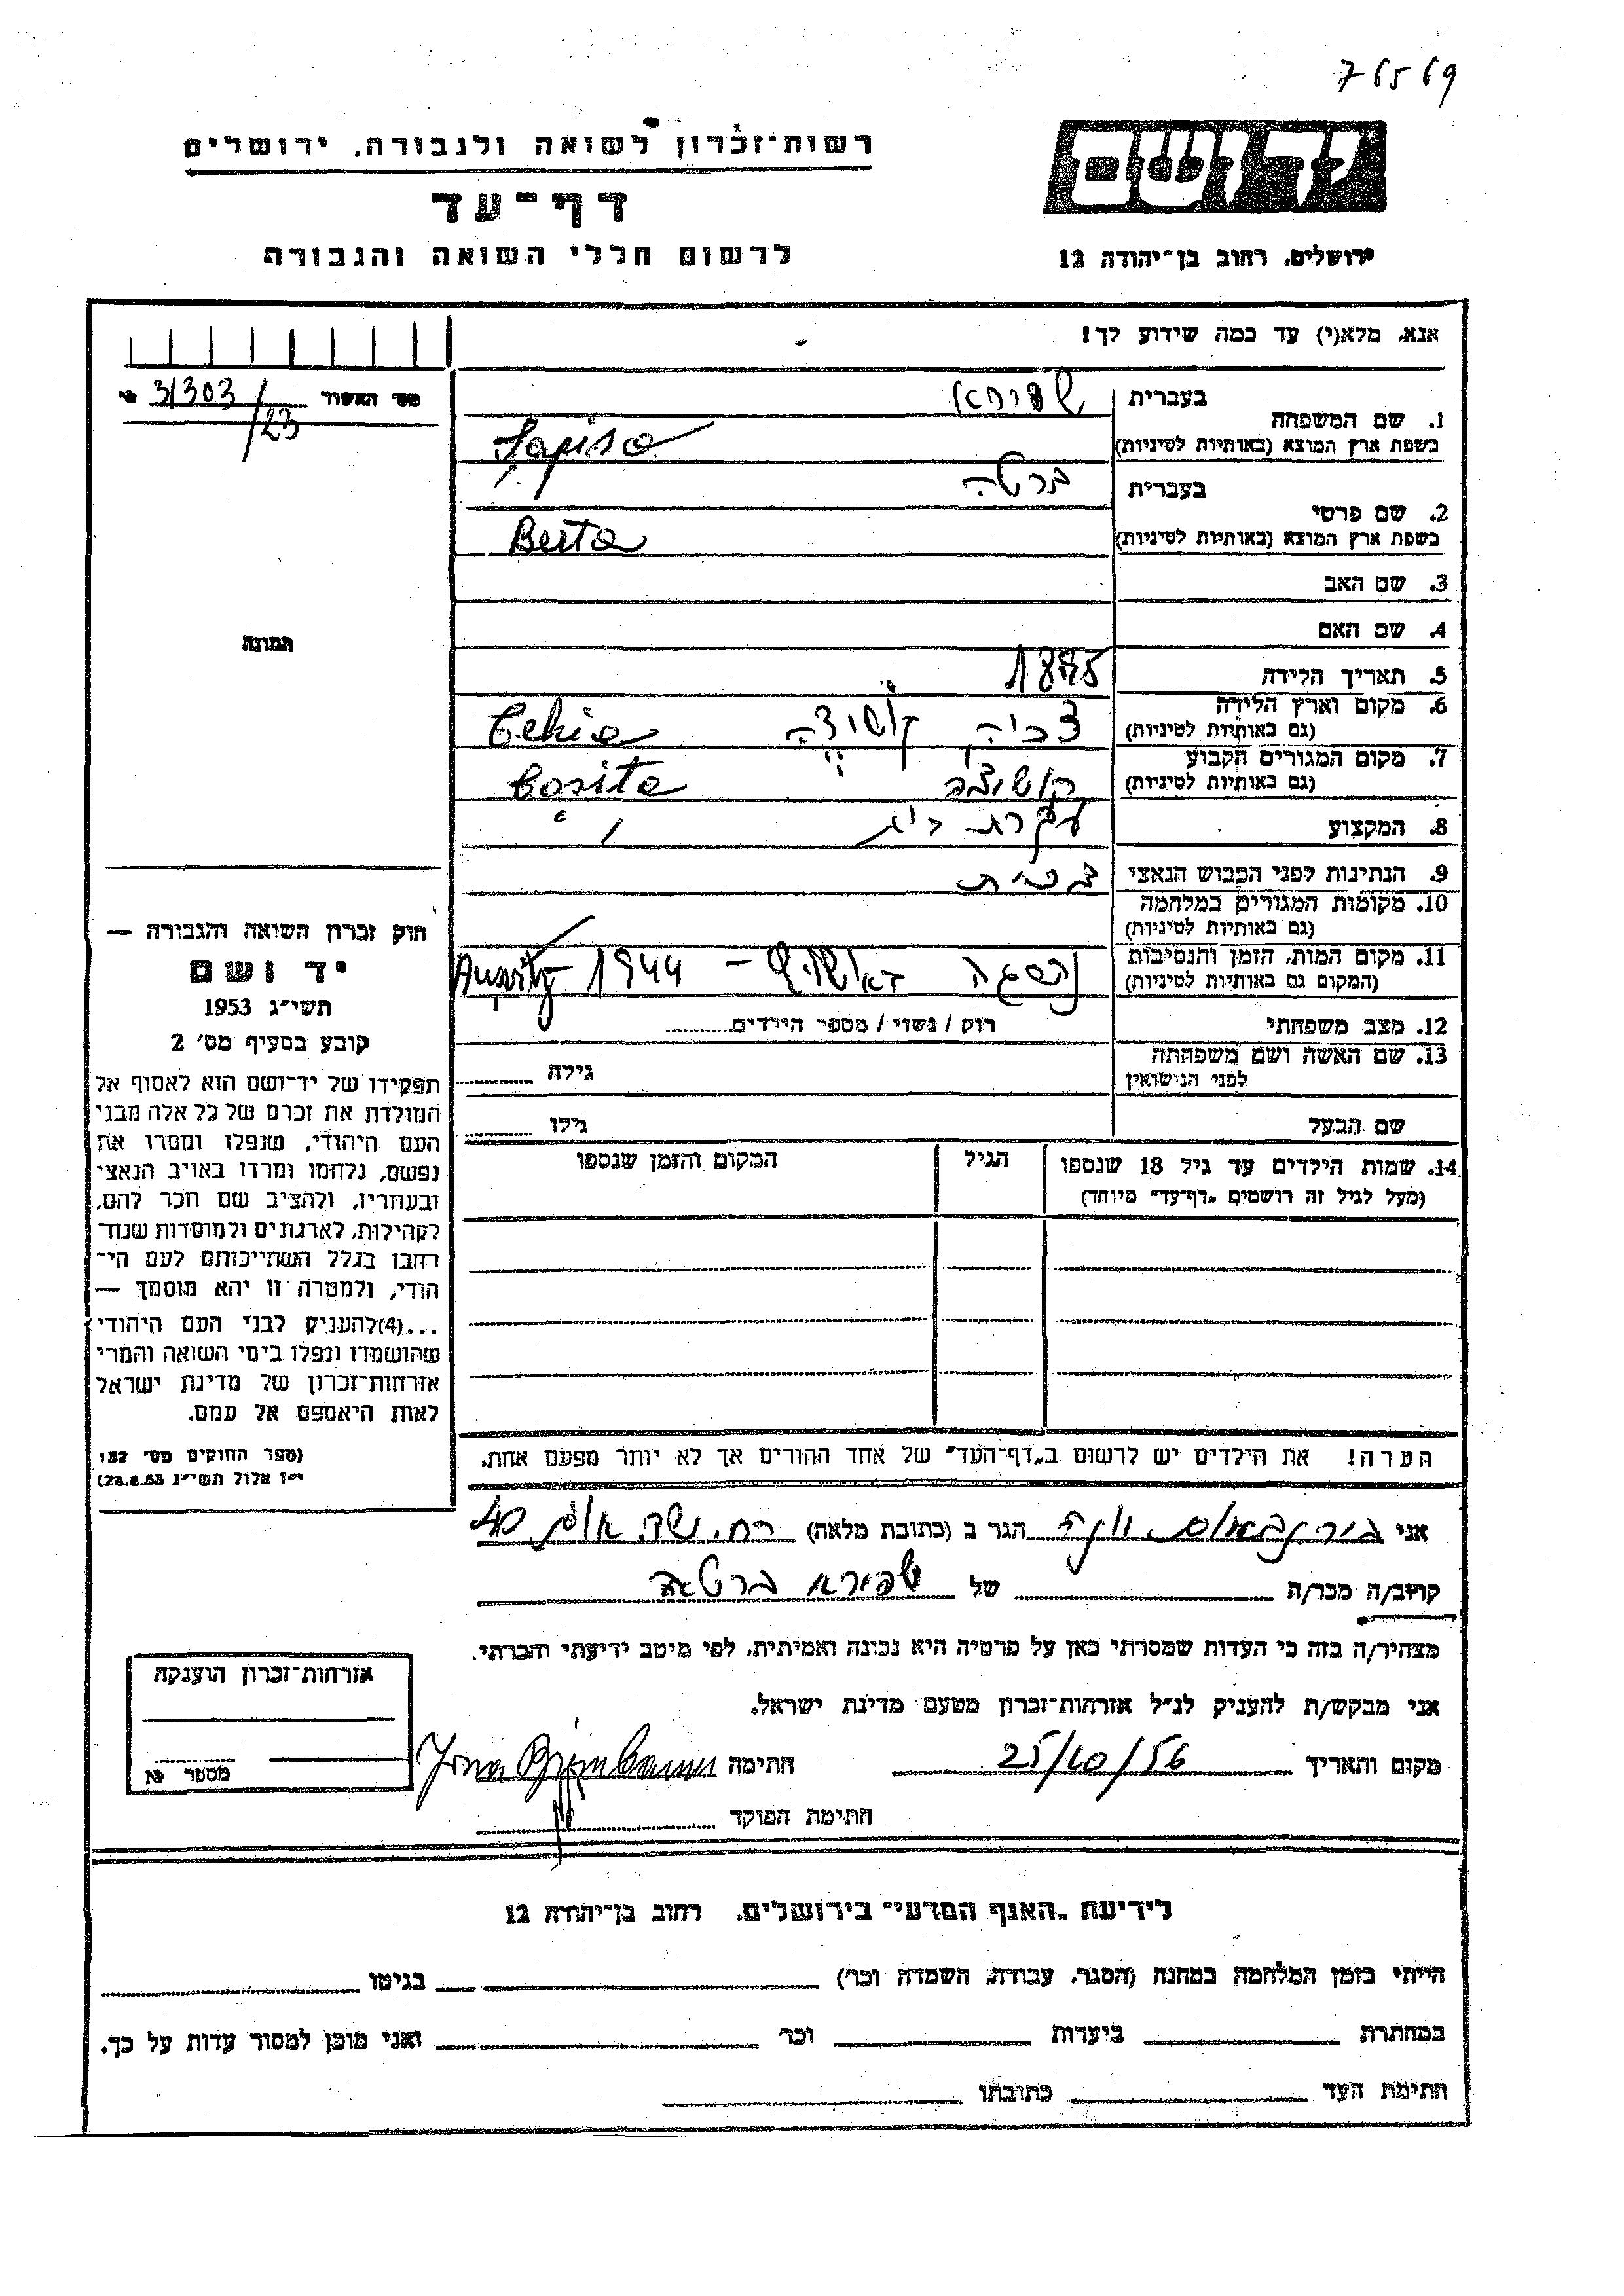 76569
רשות־זכרון לשואה ולגבורה, ירושלים
דף־עד
לרשום חללי השואה והגבורה
יד ושם
ירושלים, רחוב בן־יהודה 12
אנא, מלא(י) עד כמה שידוע לך!
מס׳ האשור 31303/23
1. שם המשפחה
בעברית שפירא
בשפת ארץ המוצא (באותיות לטיניות) Sapira
2. שם פרטי
בעברית ברטה
בשפת ארץ המוצא (באותיות לטיניות) Berta
3. שם האב
4. שם האם
תמונה
5. תאריך הלידה
6. מקום וארץ הלידה
(גם באותיות לטיניות)
7. מקום המגורים הקבוע
(גם באותיות לטיניות)
8. המקצוע עקרת בית
9. הנתינות לפני הכבוש הנאצי
10. מקומות המגורים במלחמה
(גם באותיות לטיניות)
11. מקום המות, הזמן והנסיבות
(המקום גם באותיות לטיניות) נספתה באושויץ – 1944
12. מצב משפחתי רוק / נשוי / מספר הילדים
13. שם האשה ושם משפחתה
לפני הנישואין גילה
שם הבעל גילו
14. שמות הילדים עד גיל 18 שנספו
(מעל לגיל זה רושמים „דף־עד״ מיוחד)
הגיל
המקום והזמן שנספו
חוק זכרון השואה והגבורה —
יד ושם
תשי״ג 1953
קובע בסעיף מס׳ 2
תפקידו של יד־ושם הוא לאסוף אל
המולדת את זכרם של כל אלה מבני
העם היהודי, שנפלו ומסרו את
נפשם, נלחמו ומרדו באויב הנאצי
ובעוזריו, ולהציב שם וזכר להם,
לקהילות, לארגונים ולמוסדות שנח־
רבו בגלל השתייכותם לעם הי־
הודי, ולמטרה זו יהא מוסמך —
...(4)להעניק לבני העם היהודי
שהושמדו ונפלו בימי השואה והמרי
אזרחות־זכרון של מדינת ישראל
לאות היאספם אל עמם.
(ספר החוקים מס׳ 132
י״ז אלול תשי״ג 28.8.53)
הערה! את הילדים יש לרשום ב„דף־העד״ של אחד ההורים אך לא יותר מפעם אחת.
אני בירנבאום יונה הגר ב (כתובת מלאה)
קרוב/ה מכר/ה של שפירא ברטה
מצהיר/ה בזה כי העדות שמסרתי כאן על פרטיה היא נכונה ואמיתית, לפי מיטב ידיעתי והכרתי.
אני מבקש/ת להעניק לנ״ל אזרחות־זכרון מטעם מדינת ישראל.
מקום ותאריך 25/10/56 חתימה
חתימת הפוקד
אזרחות־זכרון הוענקה
מספר
לידיעת „האגף המדעי״ בירושלים, רחוב בן־יהודה 12
הייתי בזמן המלחמה במחנה (הסגר, עבודה, השמדה וכו׳) בגיטו
במחתרת ביערות וכו׳ ואני מוכן למסור עדות על כך.
חתימת העד כתובתו